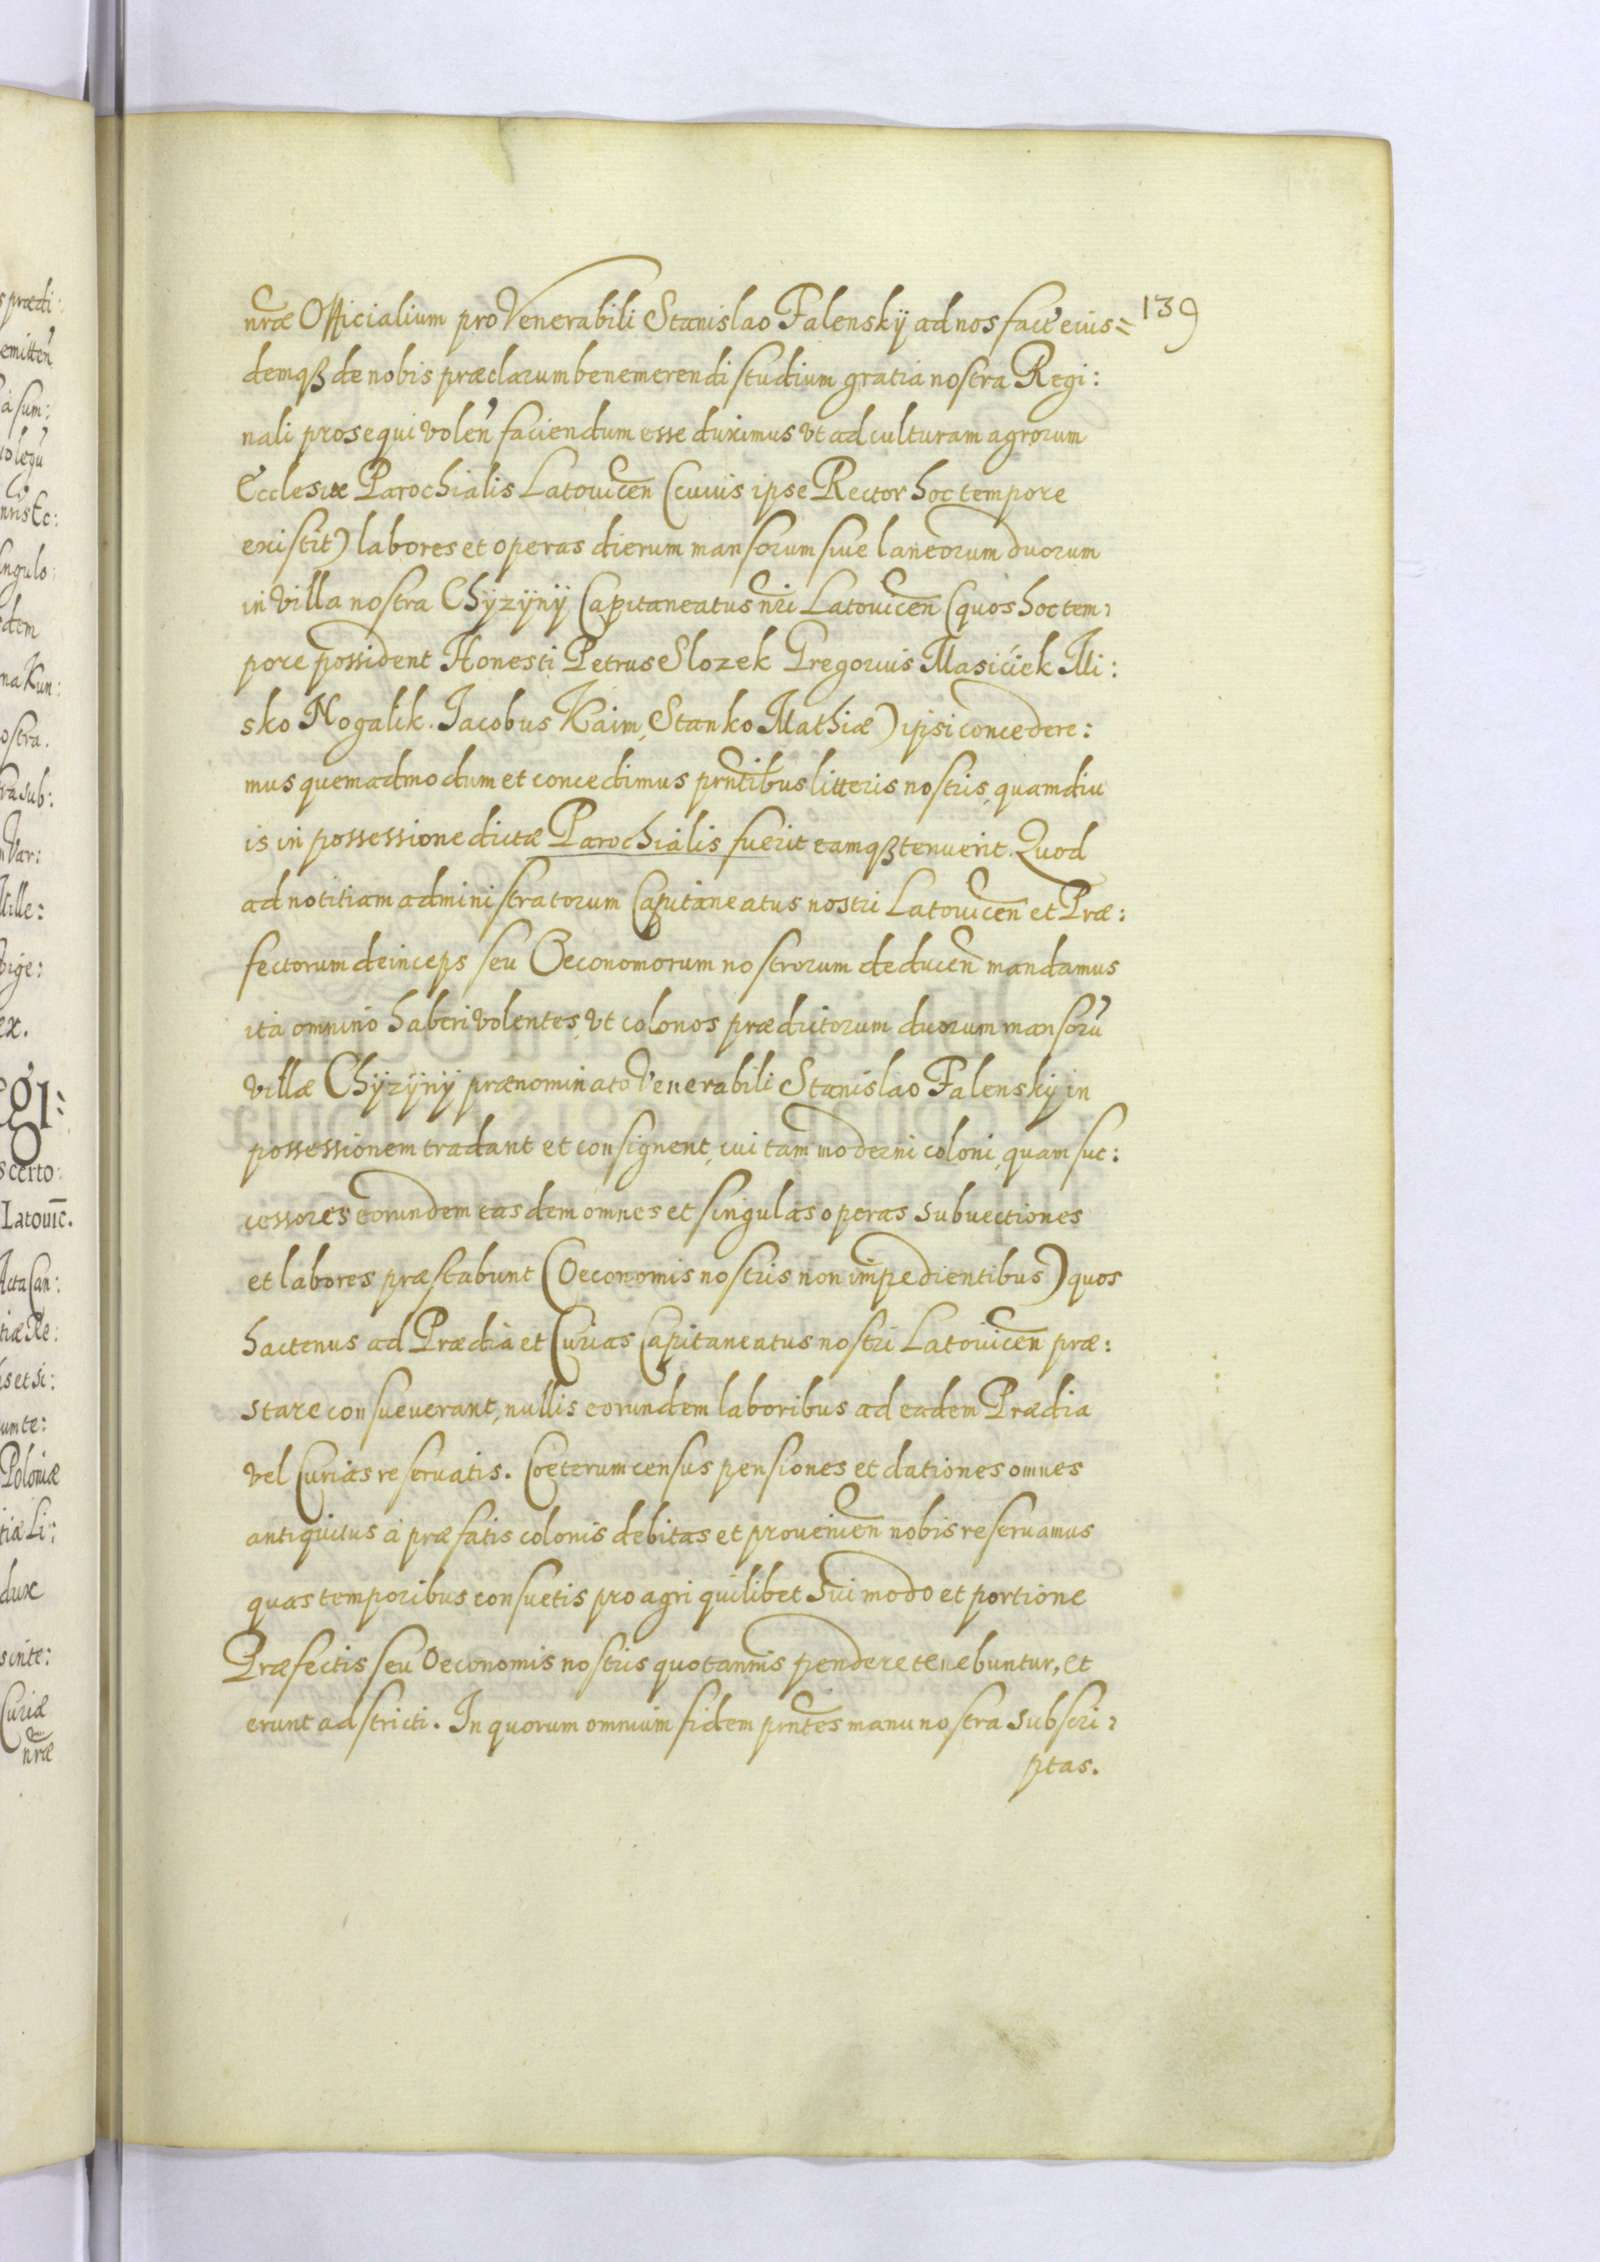 139
nræ Officialium pro Venerabili Stanislao Falenskÿ ad nos fact̃ eius=
demqȝ de nobis præclarum benemerendi studium gratia nostra Regi:
nali prosequi voleñ faciendum esse duximus vt ad culturam agrorum
Ecclesiæ Parochialis Latouiceñ (cuius ipse Rector hoc tempore
existit) labores et operas dierum mansorum siue laneorum duorum
in villa nostra Chÿzÿnÿ Capitaneatus nri Latouiceñ (quos hoc tem:
pore possident Honesti Petrus Slozek Gregorius Masićiek Mi:
sko Nogalik. Jacobus Kaim, Stanko Mathiæ) ipsi concedere:
mus quemadmodum et concedimus prñtibus litteris nostris, quamdiu
is in possessione dictæ Parochialis fuerit eamqȝ tenuerit. Quod
ad notitiam administratorum Capitaneatus nostri Latouiceñ et Præ:
fectorum deinceps seu Oeconomorum nostrorum deduceñ mandamus
ita omnino haberi volentes, vt colonos prædictorum duorum mansorũ
villæ Chÿzÿnÿ prænominato Venerabili Stanislao Falenskÿ in
possessionem tradant et consignent, cui tam moderni coloni, quam suc:
cessores eorundem easdem omnes et singulas operas subuectiones
et labores præstabunt (Oeconomis nostris non impedientibus) quos
hactenus ad Prædia et Curias Capitaneatus nostri Latouiceñ præ:
stare consueuerant, nullis eorundem laboribus ad eadem Prædia
vel Curias reseruatis. Cœterum census pensiones et dationes omnes
antiquitus à præfatis colonis debitas et prouenieñ nobis reseruamus
quas temporibus consuetis pro agri quilibet sui modo et portione
Præfectis seu Oeconomis nostris quotannis pendere tenebuntur, et
erunt adstricti. In quorum omnium fidem prñtes manu nostra subscri:
ptas.